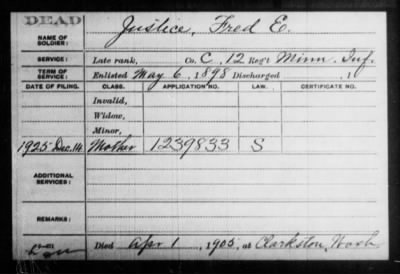 DEAD
NAME OF SOLDIER: Justice, Fred E.
SERVICE: Late rank, Co. C, 12 Reg't Minn. Inf.
TERM OF SERVICE: Enlisted May 6, 1898 Discharged , 1
DATE OF FILING. CLASS. APPLICATION NO. LAW. CERTIFICATE NO.
Invalid,
Widow,
Minor,
1925 Dec. 14 Mother 1239833 S
ADDITIONAL SERVICES:
REMARKS:
Died Apr 1, 1905, at Clarkston, Wash.